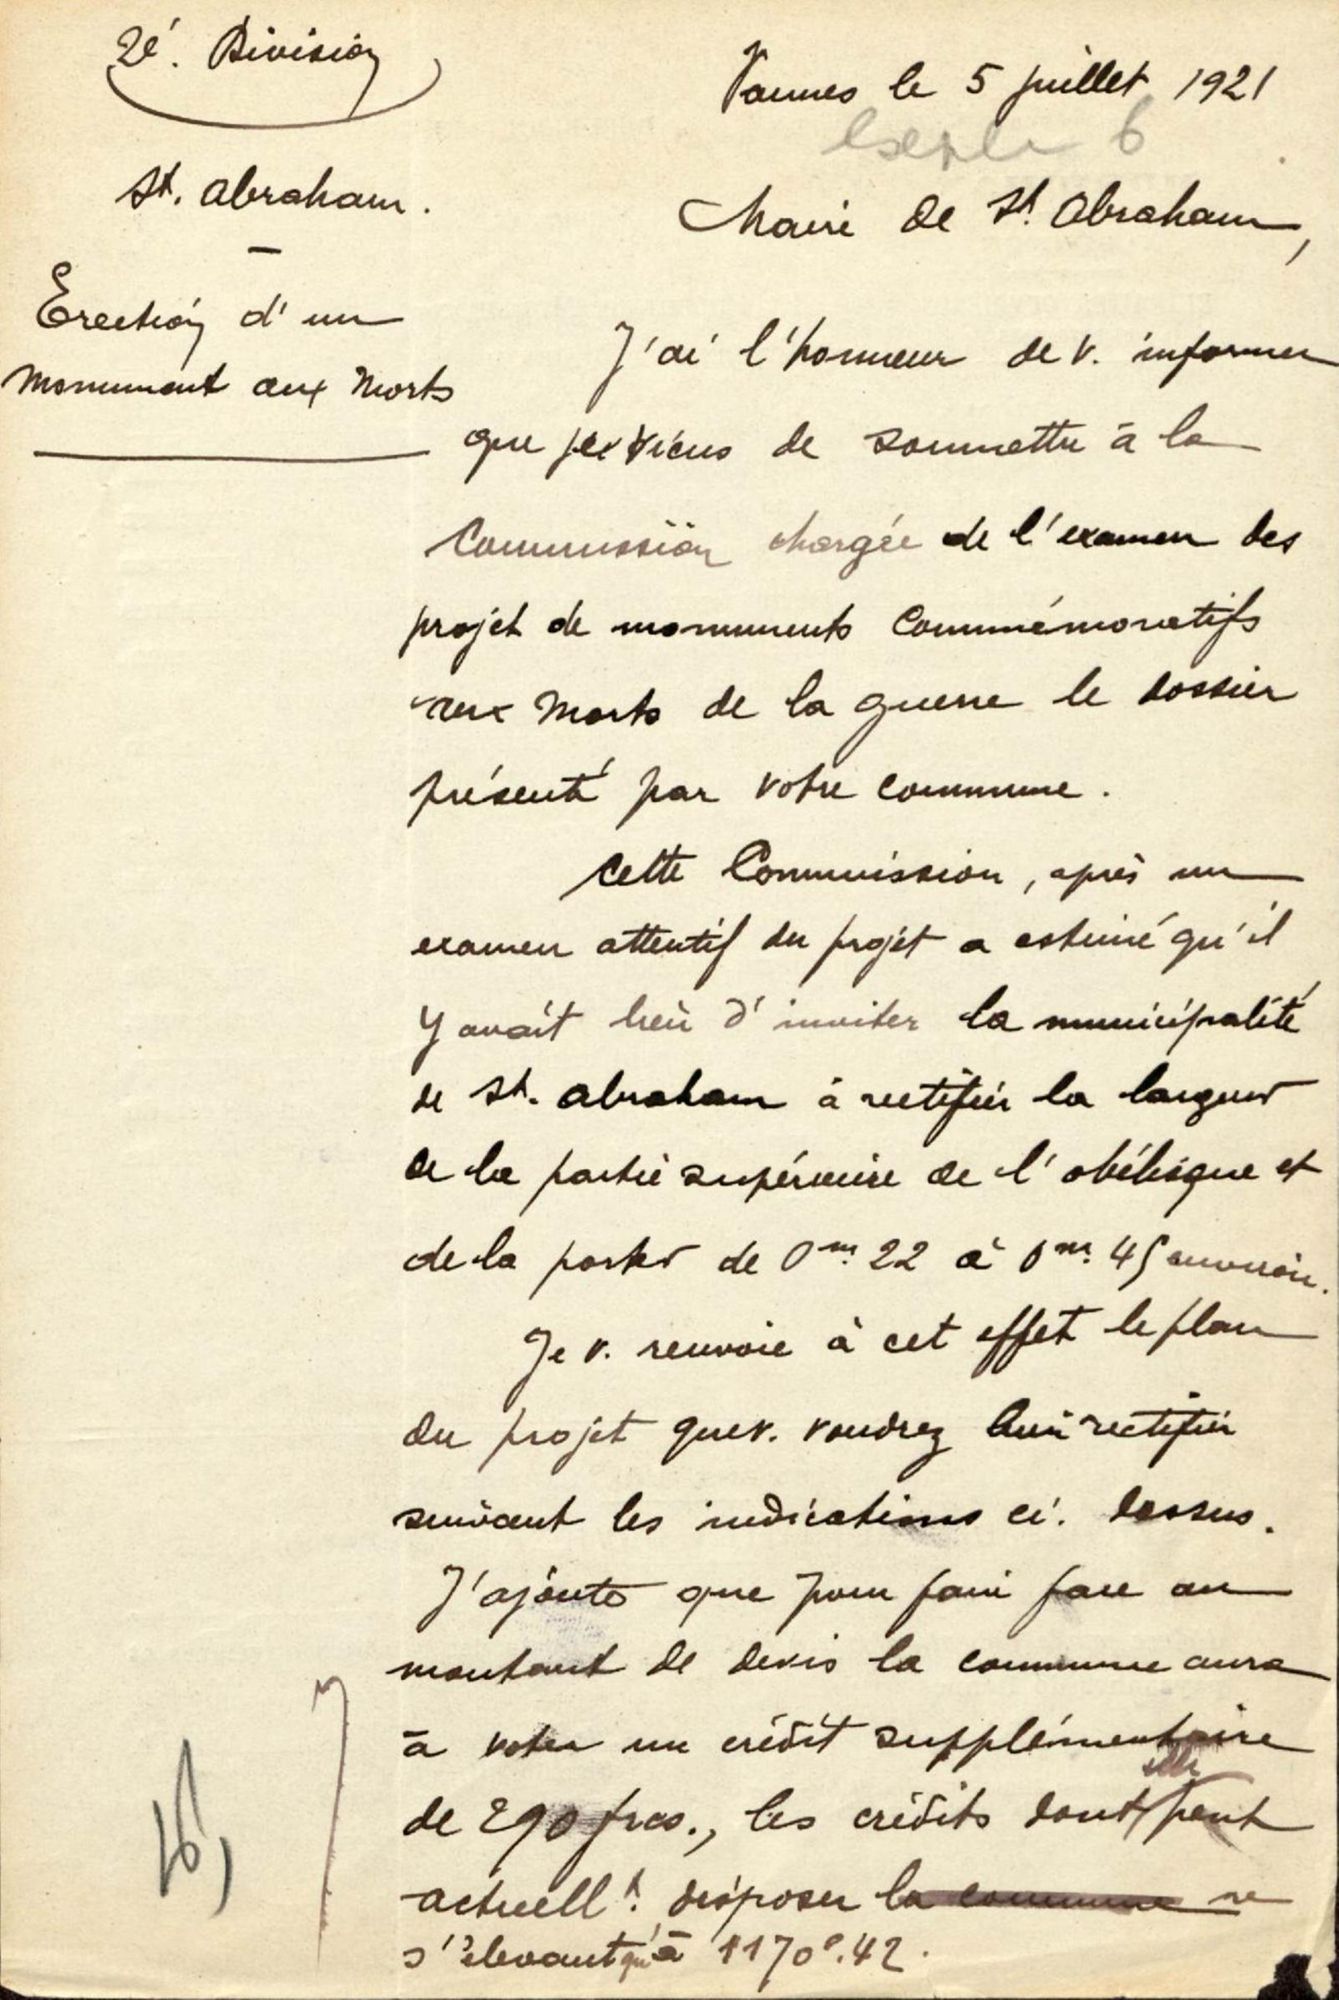 2é. Division
St. Abraham.
Erection d'un
Monument aux Morts
Vannes le 5 juillet 1921
6
Maire de St. Abraham,
J'ai l'honneur de v. informer
que je viens de soumettre à la
Commission chargée de l'examen des
projet de monuments commémoratifs
aux Morts de la guerre le dossier
présenté par votre commune.
Cette Commission, après un
examen attentif du projet a estimé qu'il
y avait lieu d'inviter la municipalité
de St. Abraham à rectifier la largeur
de la partie supérieure de l'obélisque et
de la porter de 0m.22 à 0m.45 environ.
Je v. renvoie à cet effet le plan
du projet que v. voudrez bien rectifier
suivant les indications ci. dessus.
J'ajoute que pour faire face au
montant de devis la commune aura
à voter un crédit supplémentaire
de 290 frcs., les crédits dont elle peut
actuellt. disposer la commune ne
s'élevant qu'à 1170f.42.